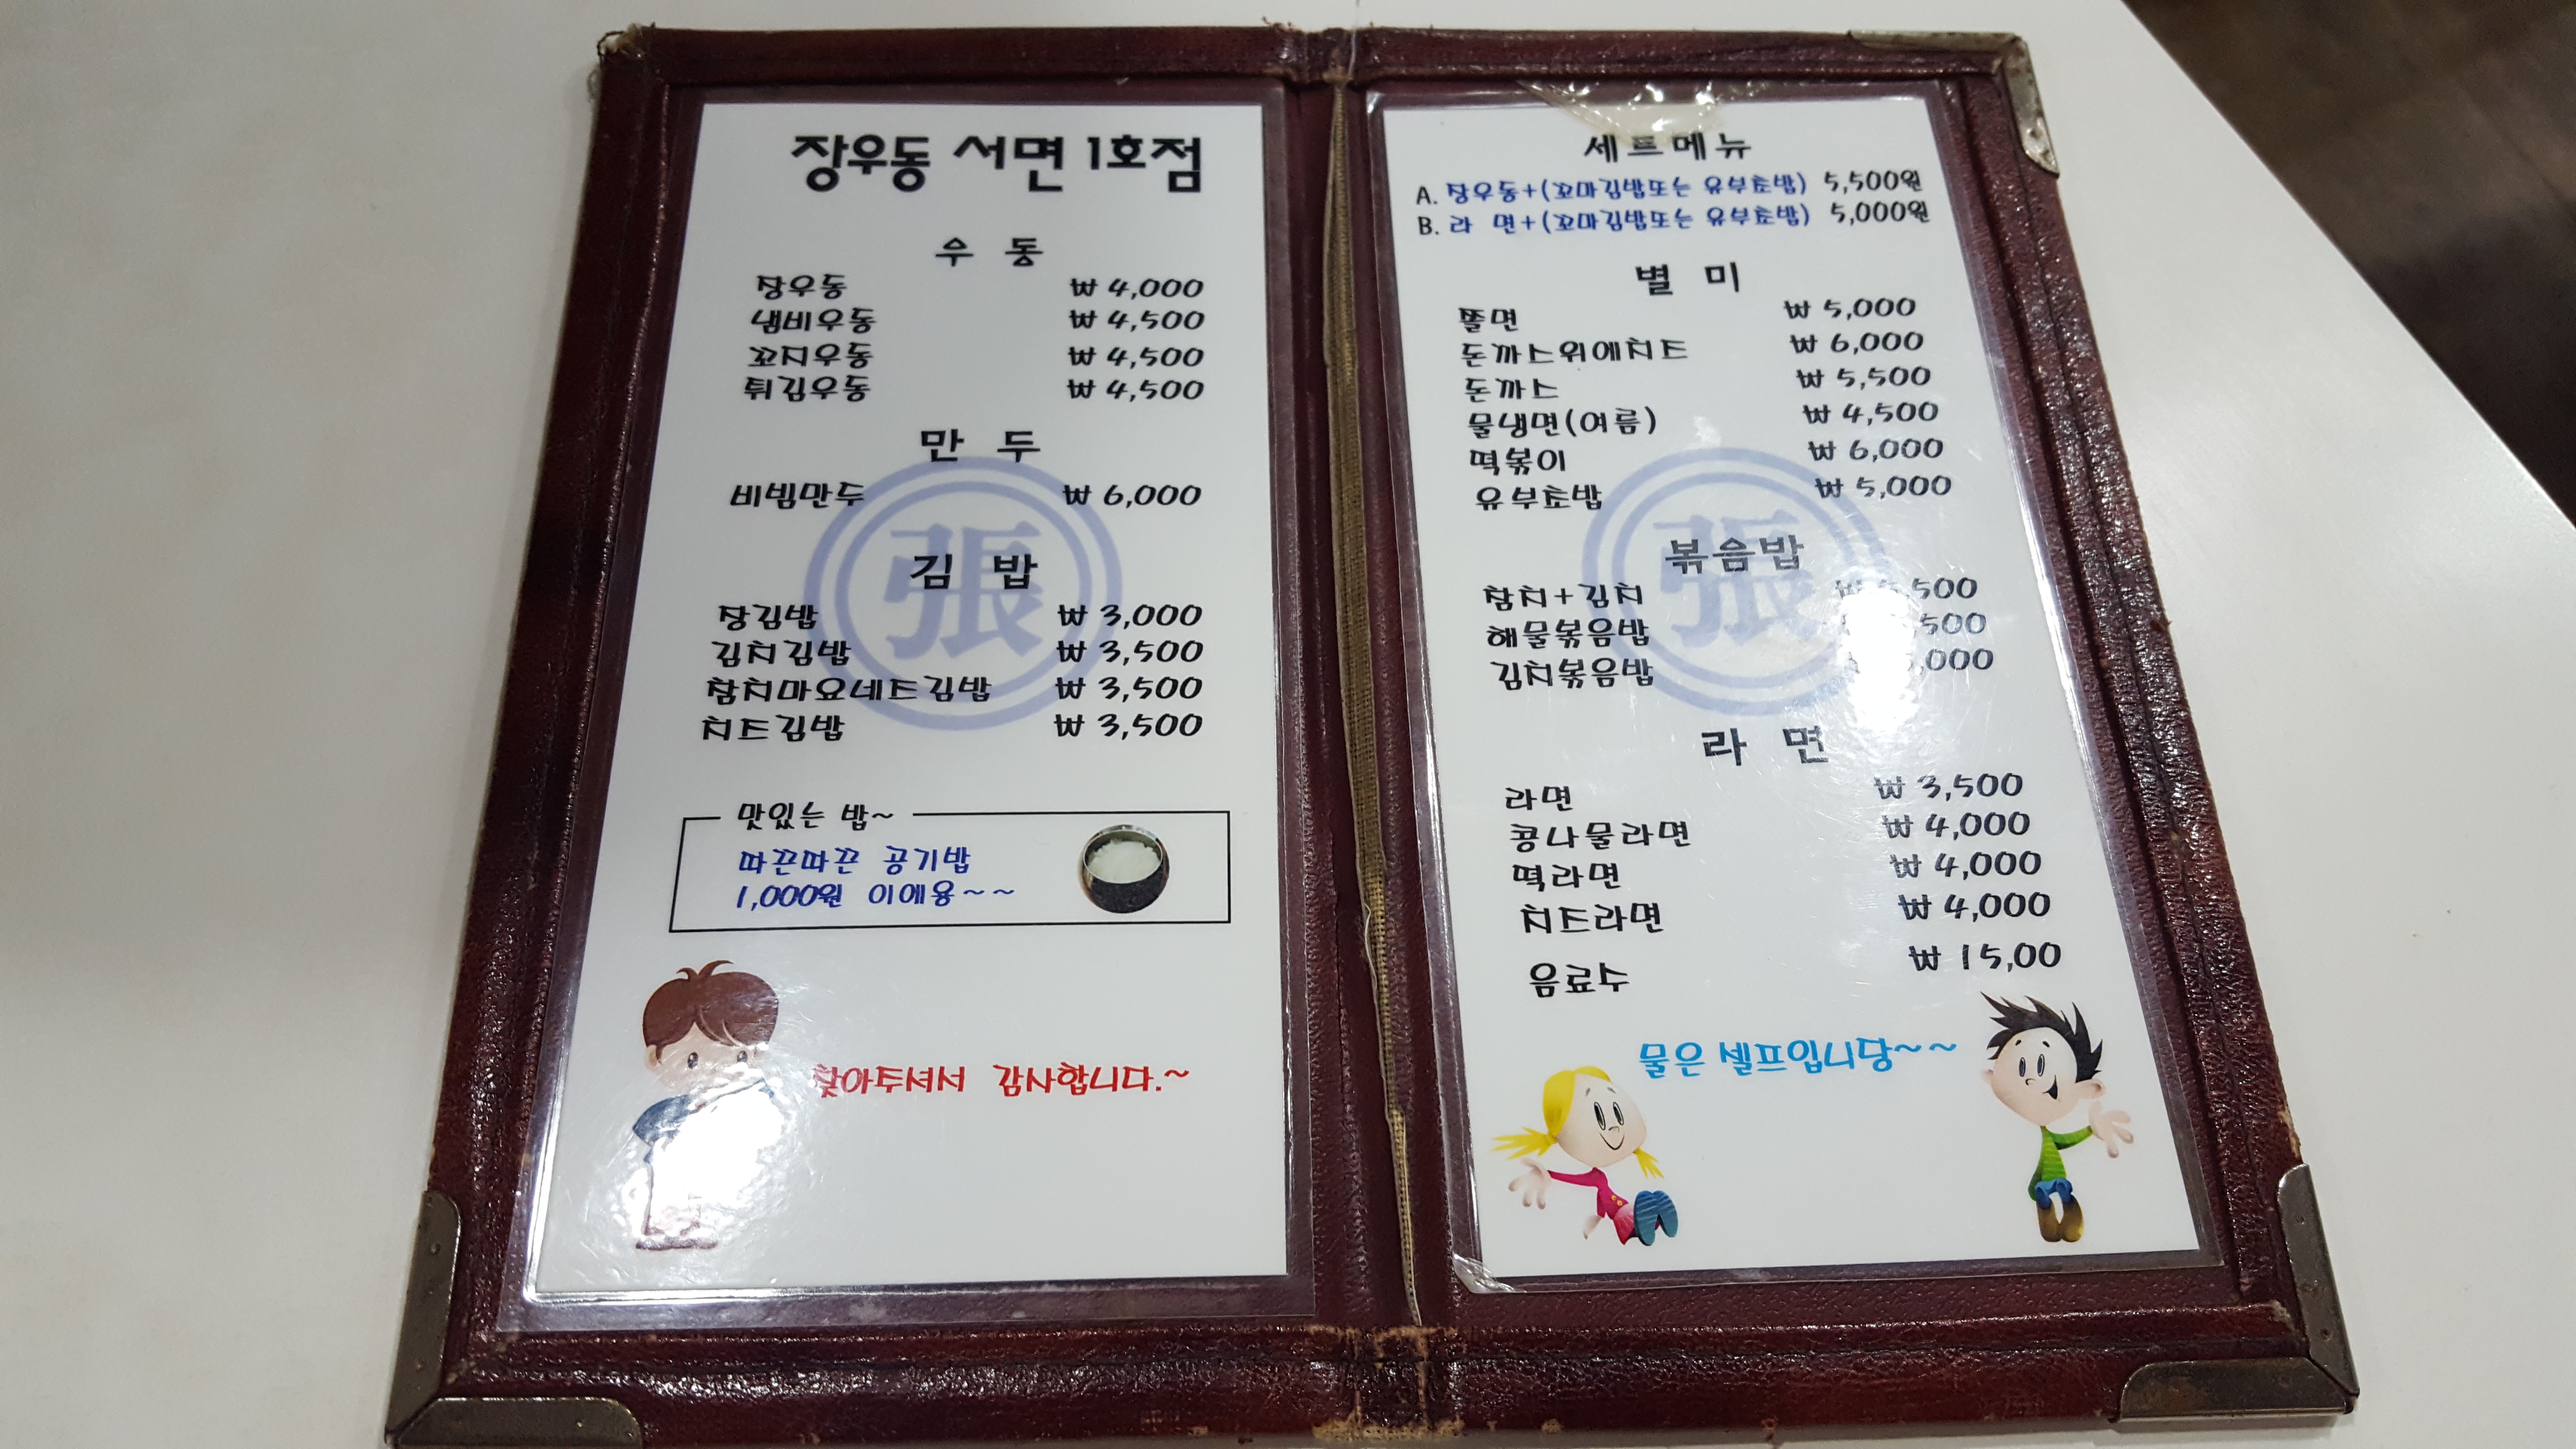 장우동 서면 1호점
우 동
장우동 ₩ 4,000
냄비우동 ₩ 4,500
꼬치우동 ₩ 4,500
튀김우동 ₩ 4,500
만 두
비빔만두 ₩ 6,000
張
김 밥
장김밥 ₩ 3,000
김치김밥 ₩ 3,500
참치마요네즈김밥 ₩ 3,500
치즈김밥 ₩ 3,500
맛있는 밥~
따끈따끈 공기밥
1,000원 이에용~~
찾아주셔서 감사합니다.~
세트메뉴
A. 장우동+(꼬마김밥또는 유부초밥) 5,500원
B. 라 면+(꼬마김밥또는 유부초밥) 5,000원
별 미
쫄면 ₩ 5,000
돈까스위에치즈 ₩ 6,000
돈까스 ₩ 5,500
물냉면(여름) ₩ 4,500
떡볶이 ₩ 6,000
유부초밥 ₩ 5,000
張
볶음밥
참치+김치
해물볶음밥
김치볶음밥
라 면
라면 ₩ 3,500
콩나물라면 ₩ 4,000
떡라면 ₩ 4,000
치즈라면 ₩ 4,000
음료수 ₩ 15,00
물은 셀프입니당~~